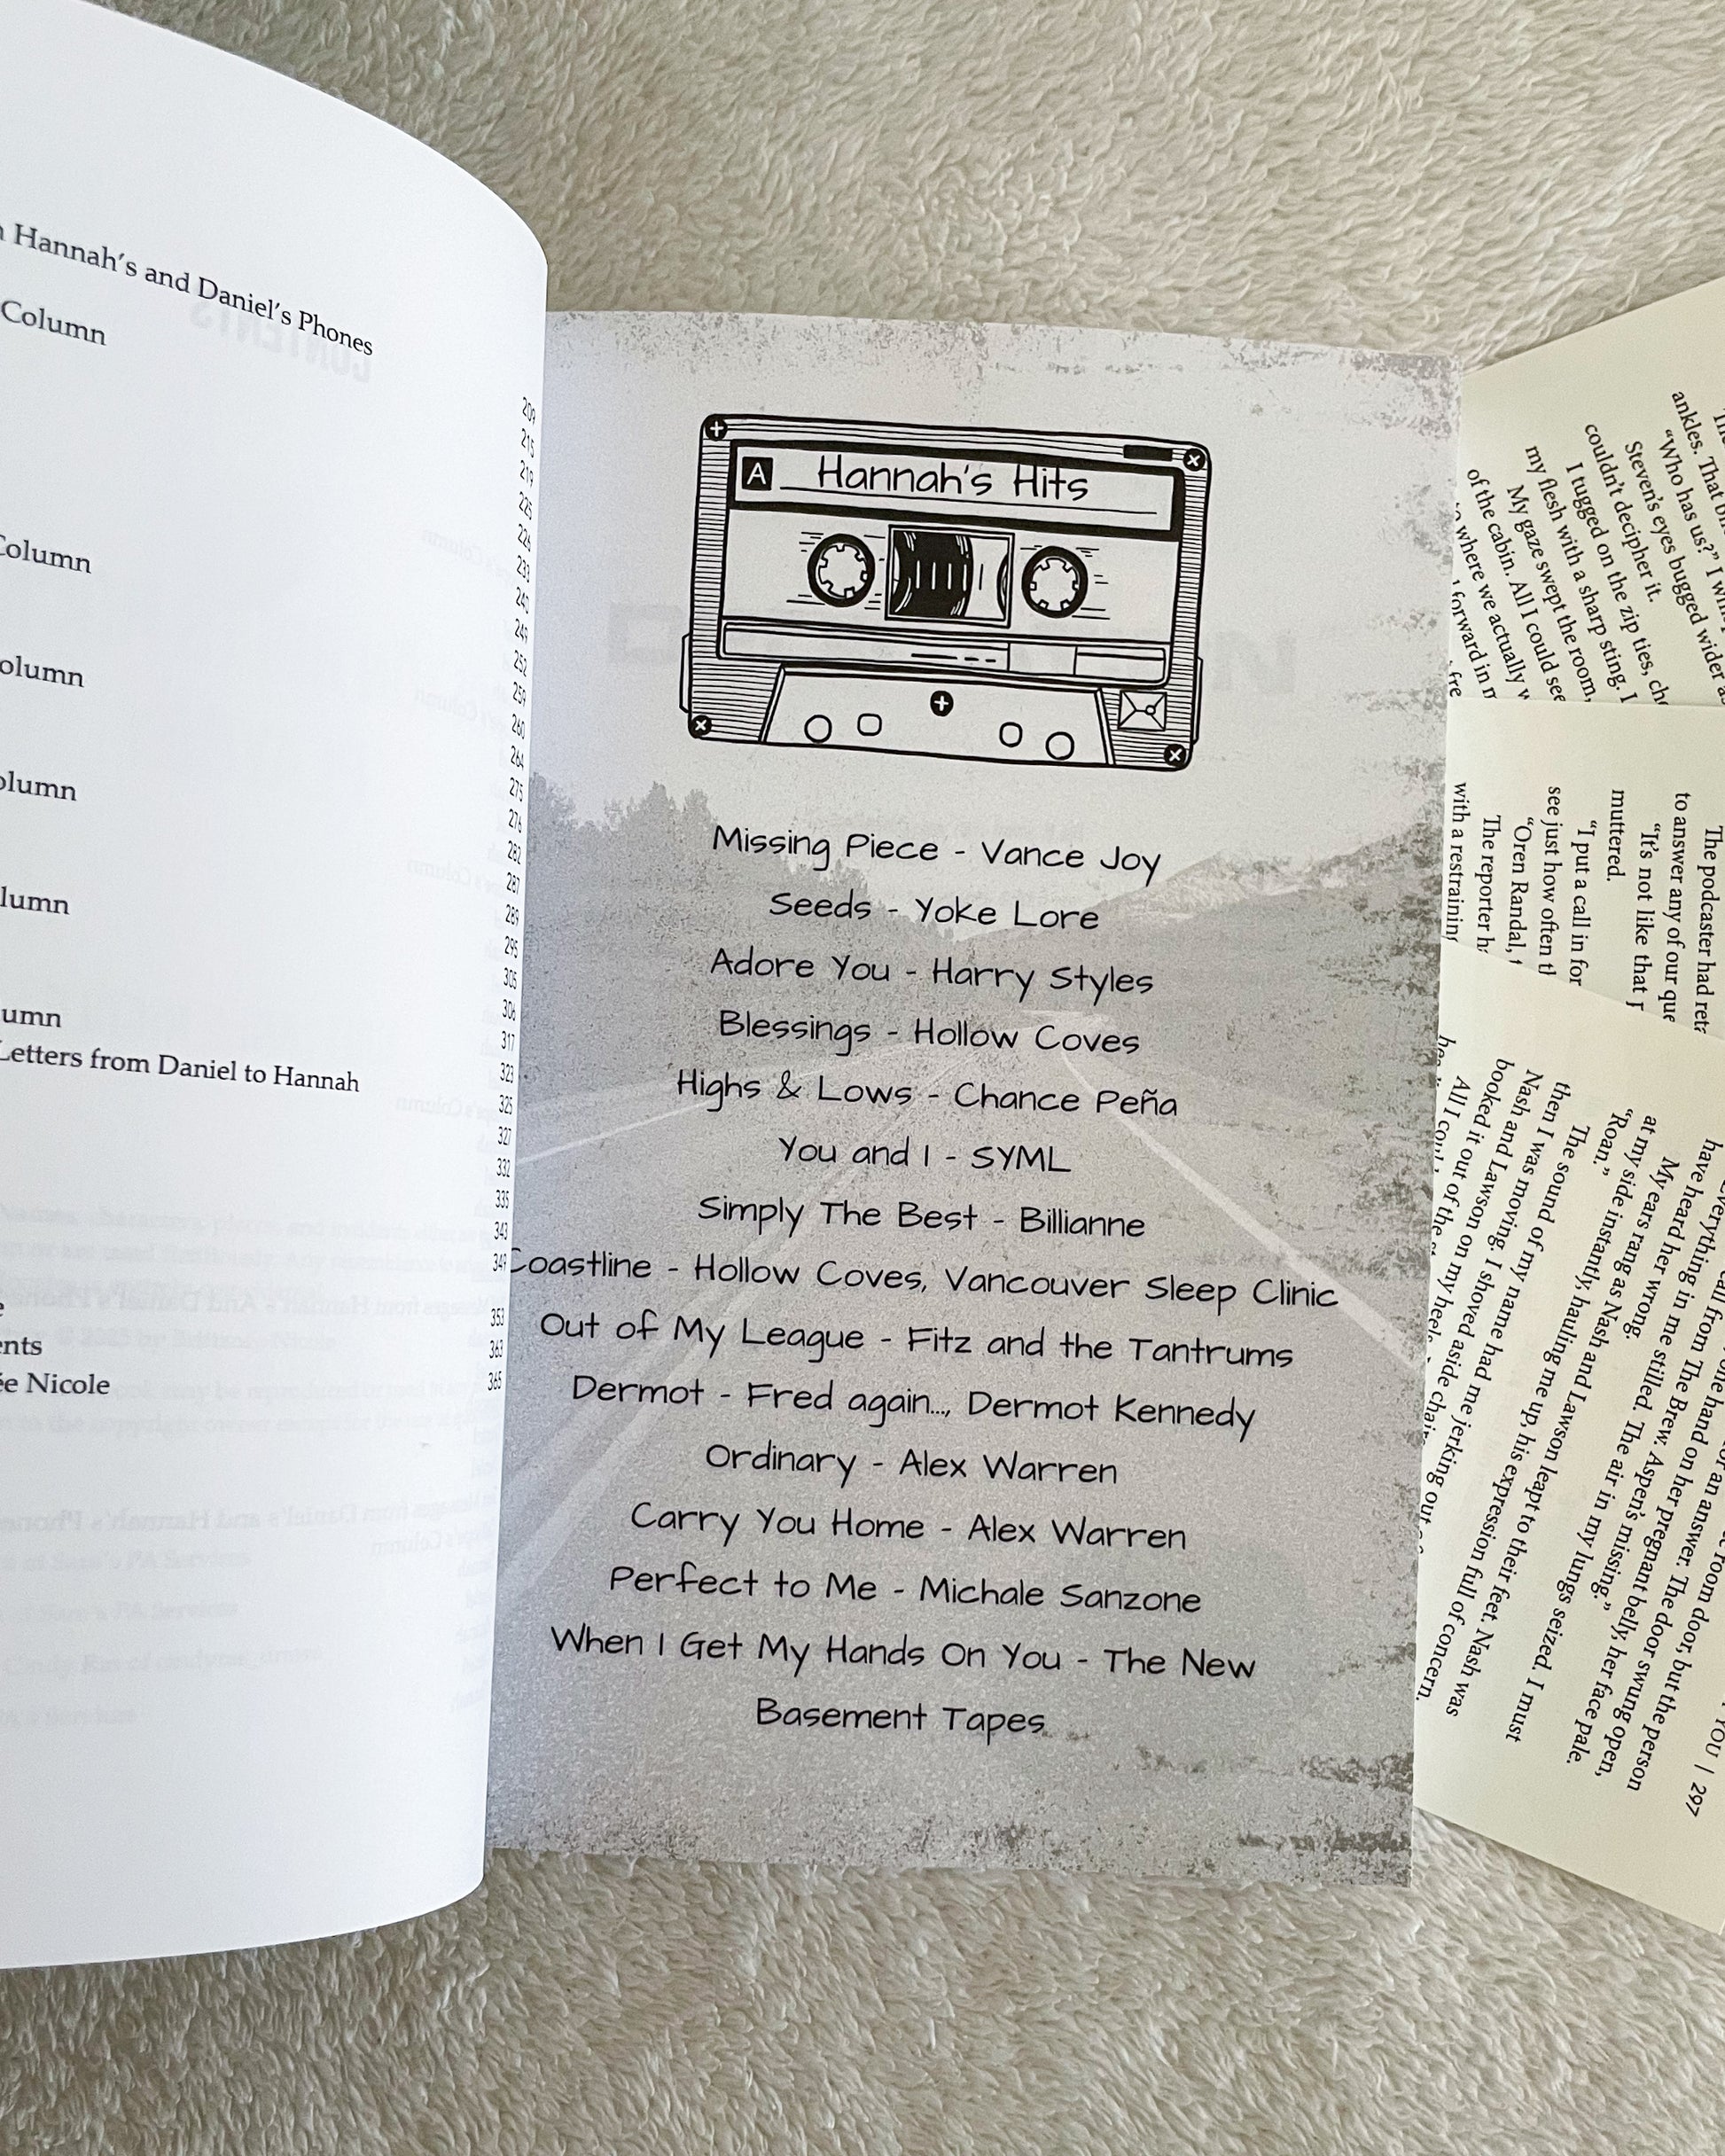 Hannah's and Daniel's Phones
Column
Column
olumn
olumn
lumn
umn
Letters from Daniel to Hannah
ents
ée Nicole
209
215
219
225
226
233
240
249
252
259
260
264
275
276
282
287
289
295
305
306
317
323
325
327
332
335
343
349
353
363
365
A Hannah's Hits
Missing Piece - Vance Joy
Seeds - Yoke Lore
Adore You - Harry Styles
Blessings - Hollow Coves
Highs & Lows - Chance Peña
You and I - SYML
Simply The Best - Billianne
Coastline - Hollow Coves, Vancouver Sleep Clinic
Out of My League - Fitz and the Tantrums
Dermot - Fred again..., Dermot Kennedy
Ordinary - Alex Warren
Carry You Home - Alex Warren
Perfect to Me - Michale Sanzone
When I Get My Hands On You - The New
Basement Tapes
ankles. That
“Who has us?” I
Steven’s eyes bugged wider
couldn’t decipher it.
I tugged on the zip ties,
my flesh with a sharp sting. I
My gaze swept the room,
of the cabin. All I could see
where we actually
forward in
The podcaster had
to answer any of our
“It’s not like that
muttered.
“I put a call in for
see just how often
“Oren Randal,
The reporter
with a restraining
YOU | 297
call from the hand on
for an answer. The door swung open,
have heard everything in me stilled.
My ears rang as Nash and Lawson leapt to their feet. Nash was
at my side instantly, hauling me up, his expression full of concern.
“Roan.”
The sound of my name had me jerking out
then I was moving. I shoved aside chairs
Nash and Lawson on my heels
booked it out of the
All I could